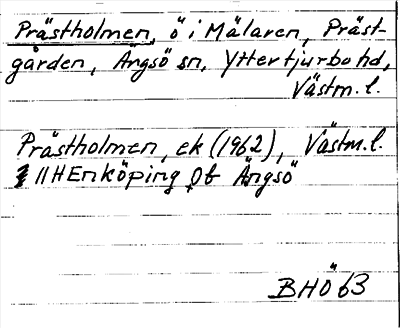 Prästholmen, ö i Mälaren, Präst-
gården, Ängsö sn, Yttertjurbo hd,
Västm. l.
Prästholmen, ek (1962), Västm. l.
11HEnköping 0f Ängsö
BHÖ 63